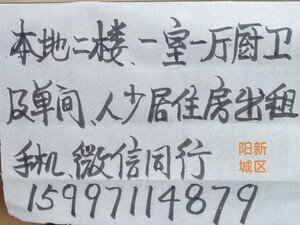 本地二楼、一室一厅厨卫
及单间、人少居住房出租
手机、微信同行
阳新
城区
15997114879